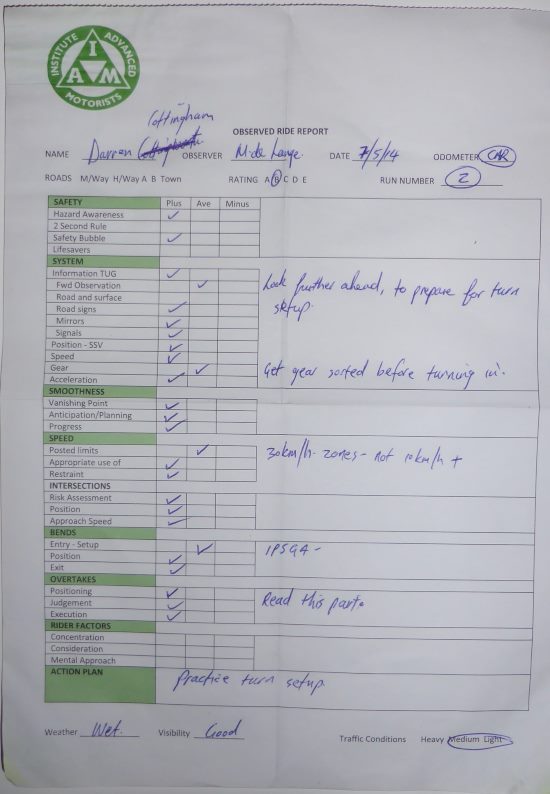 INSTITUTE ADVANCED
I
A M
MOTORISTS
Cottingham
OBSERVED RIDE REPORT
NAME Darren OBSERVER M. de Lange. DATE 7/5/14 ODOMETER CAR
ROADS M/Way H/Way A B Town RATING A B C D E RUN NUMBER 2
SAFETY Plus Ave Minus
Hazard Awareness ✓
2 Second Rule
Safety Bubble ✓
Lifesavers
SYSTEM
Information TUG ✓
Fwd Observation ✓ Look further ahead, to prepare for turn
Road and surface setup.
Road signs ✓
Mirrors ✓
Signals ✓
Position - SSV ✓
Speed ✓
Gear ✓ Get gear sorted before turning in.
Acceleration ✓
SMOOTHNESS
Vanishing Point ✓
Anticipation/Planning ✓
Progress ✓
SPEED
Posted limits ✓ 30km/h- zones - not 10km/h +
Appropriate use of ✓
Restraint ✓
INTERSECTIONS
Risk Assessment ✓
Position ✓
Approach Speed ✓
BENDS
Entry - Setup ✓ IPSGA -
Position ✓
Exit ✓
OVERTAKES
Positioning ✓
Judgement ✓ Read this part.
Execution ✓
RIDER FACTORS
Concentration
Consideration
Mental Approach
ACTION PLAN Practice turn setup
Weather Wet. Visibility Good Traffic Conditions Heavy Medium Light